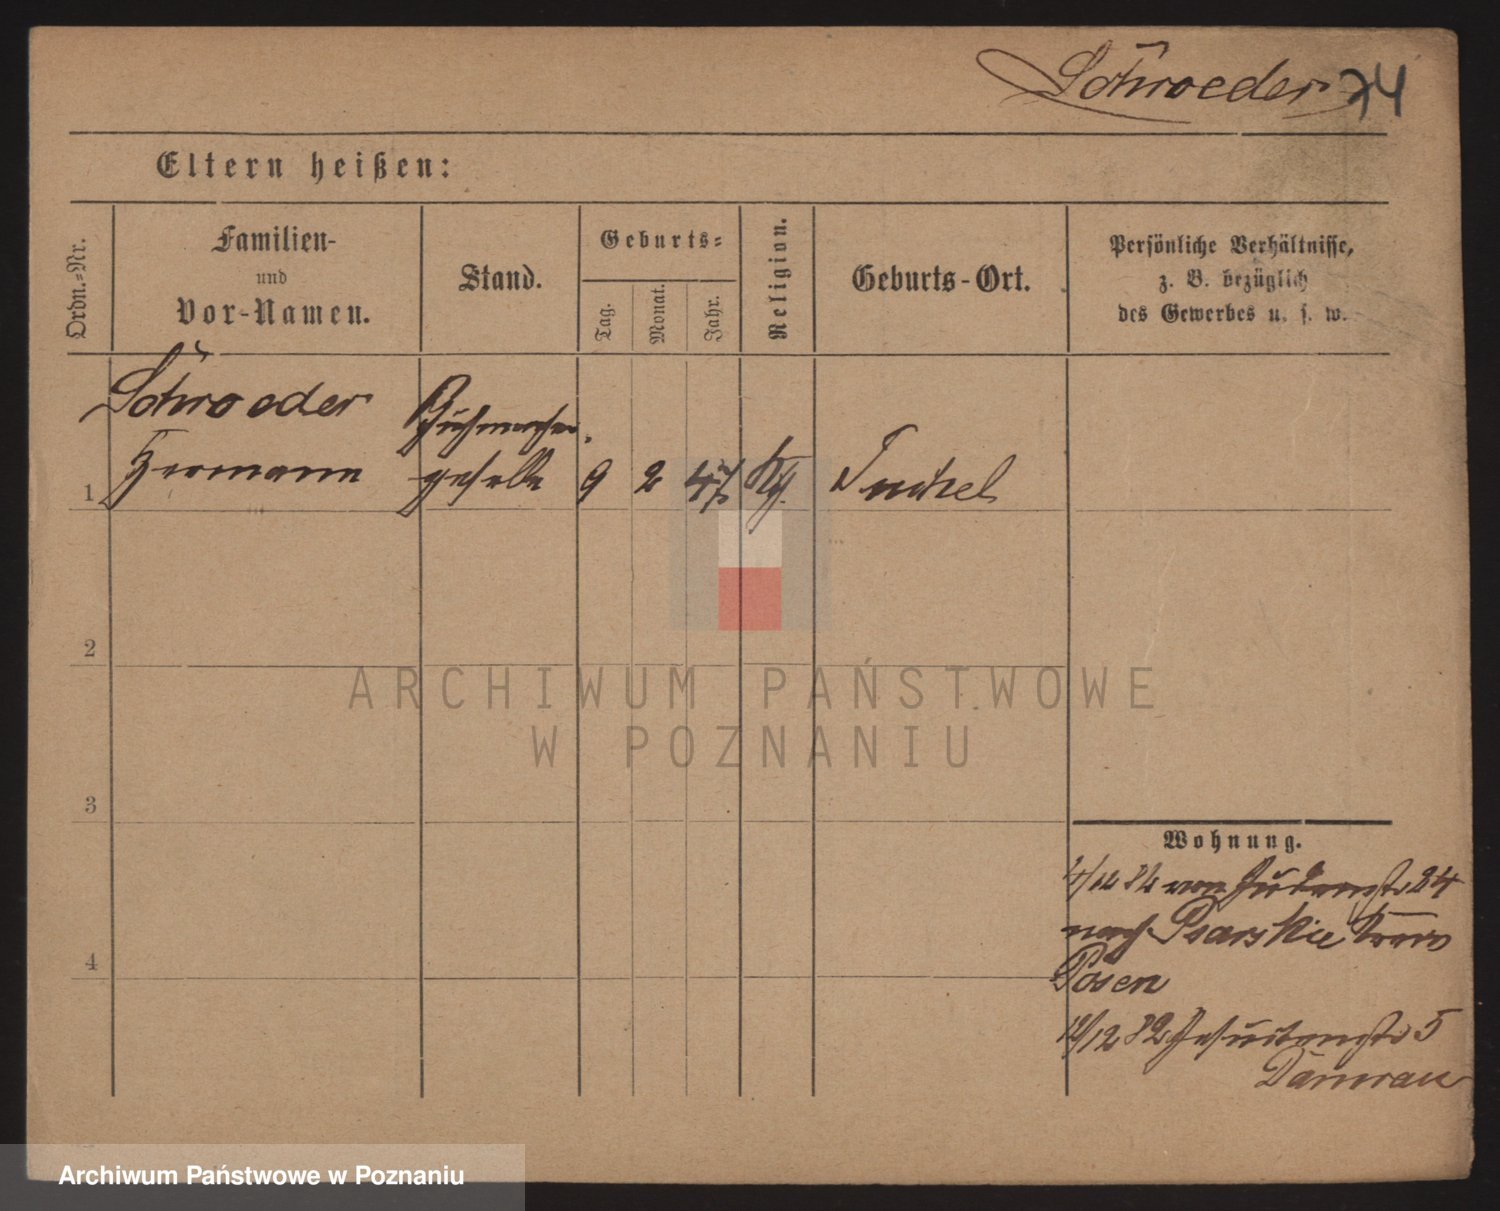 Schroeder 74
Eltern heißen:
Ordn.-Nr.
Familien-
und
Vor-Namen.
Stand.
Geburts-
Tag.
Monat.
Jahr.
Religion.
Geburts-Ort.
Persönliche Verhältnisse,
z. B. bezüglich
des Gewerbes u. s. w.
Schroeder
Hermann
geselle
1
9
2
47
Tuchel
2
3
4
ARCHIWUM PAŃSTWOWE
W POZNANIU
Wohnung.
4/12 82 von Judenstr 24
nach Psarskie Kreis
Posen
12/12 82 Jesuitenstr 5
Archiwum Państwowe w Poznaniu